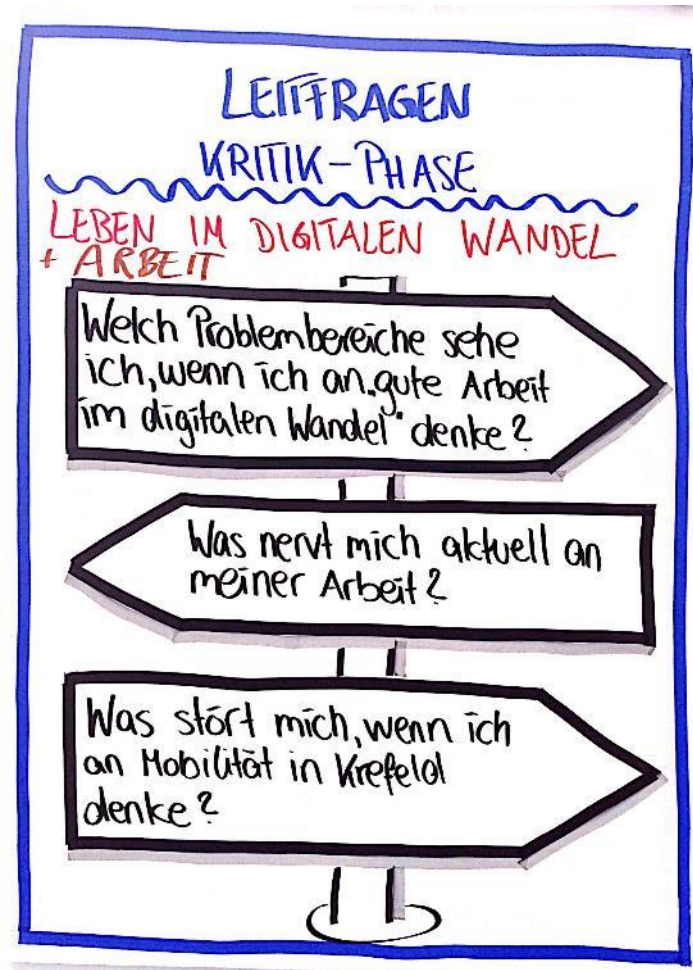 LEITFRAGEN
KRITIK-PHASE
LEBEN IM DIGITALEN WANDEL
+ ARBEIT
Welch Problembereiche sehe
ich, wenn ich an „gute Arbeit
im digitalen Wandel“ denke?
Was nervt mich aktuell an
meiner Arbeit?
Was stört mich, wenn ich
an Mobilität in Krefeld
denke?